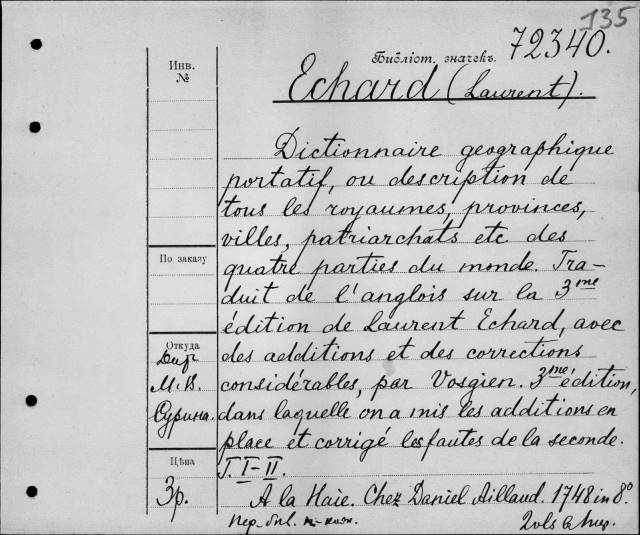 135
Библіот. значекъ. 72340.
Инв. №
Echard (Laurent).
Dictionnaire geographique
portatif, ou description de
tous les royaumes, provinces,
villes, patriarchats etc. des
По заказу
quatre parties du monde. Tra-
duit de l'anglois sur la 3me
édition de Laurent Echard, avec
Откуда
des additions et des corrections
М. В.
considérables, par Vosgien. 3me édition,
Сурина.
dans laquelle on a mis les additions en
place et corrigé les fautes de la seconde.
T. I-II.
Цѣна
3р.
A la Haie. Chez Daniel Aillaud. 1748 in 8°
2 vls